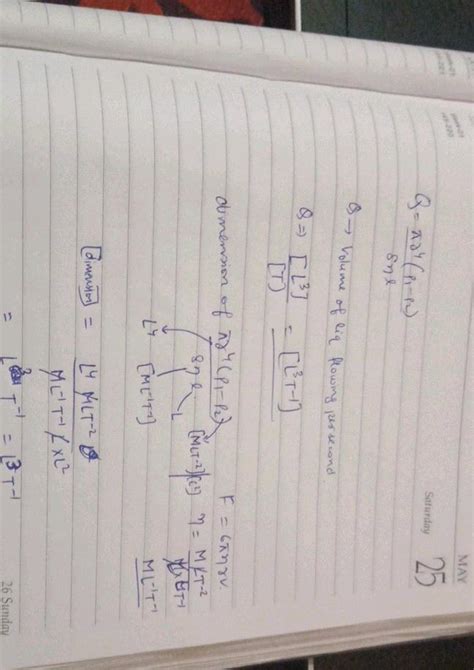 MAY
25
Saturday
Q = πr⁴(P₁-P₂)
8ηl
Q → Volume of liq flowing per second
Q ⇒ [L³] = [L³T-1]
[T]
dimension of πr⁴(P₁-P₂)
8ηl
F = 6πηrv
L⁴
[ML⁻¹T⁻¹]
L
[MLT⁻²]/[L²]
η = MLT⁻²
ML⁻¹T⁻¹
[dimension] = L⁴ MLT⁻²
ML⁻¹T⁻¹ L×L²
= L³ T⁻¹ = L³T⁻¹
26 Sunday